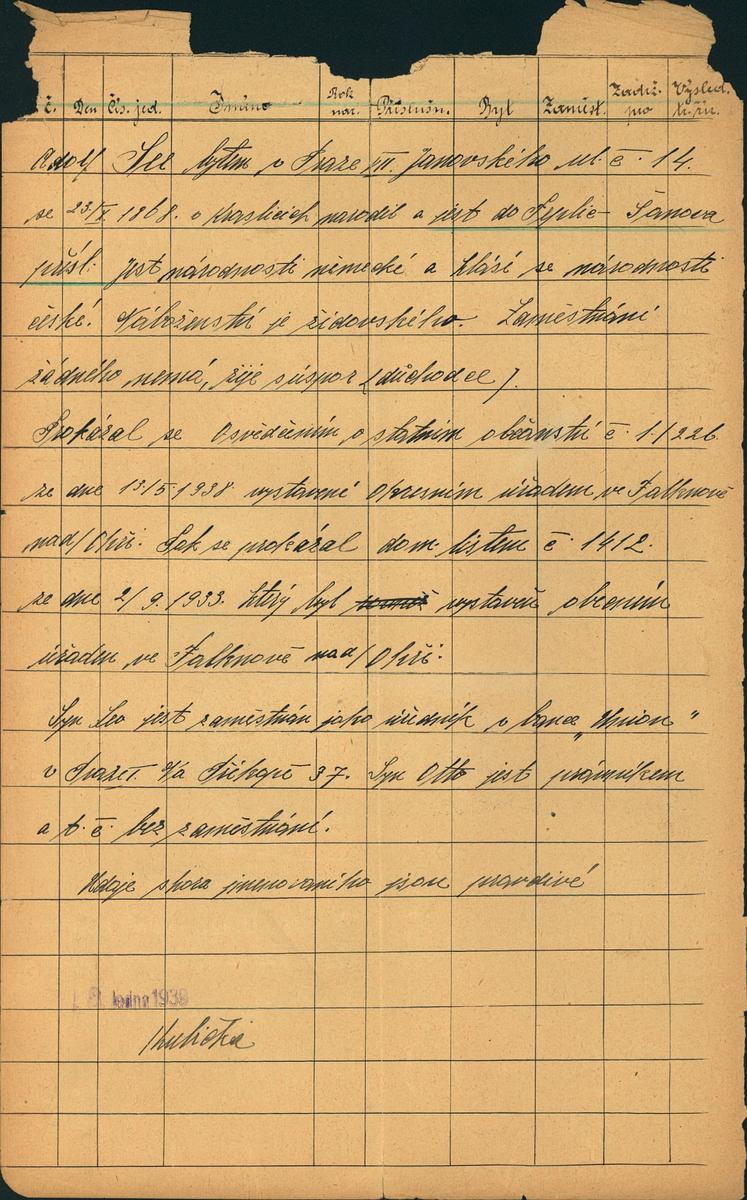 č. Den Čís. jed. Jméno Rok nar. Příslušn. Byt Zaměst. Zadrž. pro Výsled.
Adolf bytem v Praze VII. Janovského ul. č. 14.
se 23/X 1868. v Kraslicích narodil a jest do Teplic - Šanova
přísl. Jest národnosti německé a hlásí se národnosti
české. Náboženství je židovského. Zaměstnání
žádného nemá, žije z úspor (důchodce).
Prokázal se Osvědčením o státním občanství č. 1./226
ze dne 13/5 1938 vystavené Okresním úřadem ve Falknově
nad/Ohří. Pak se prokázal dom. listem č. 1412.
ze dne 2/9. 1933. který byl vystaven obecním
úřadem ve Falknově nad/Ohří.
Syn Leo jest zaměstnán jako úředník v bance „Union"
v Praze I. Na Příkopě 37. Syn Otto jest právníkem
a t. č. bez zaměstnání.
Údaje shora jmenovaného jsou pravdivé
ledna 1939